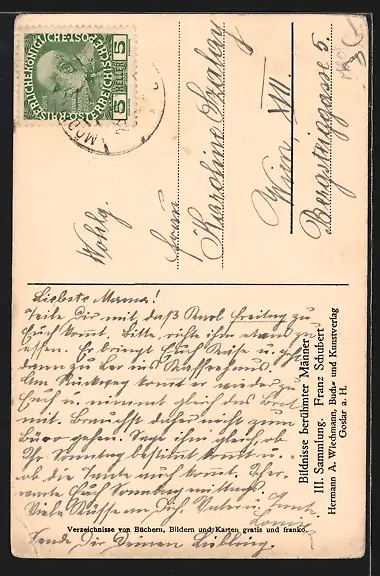 KAISERLICHE KÖNIGLICHE ÖSTERREICHISCHE POST
5 HELLER 5
MÖD
Wohlg.
Frau
Karoline Szalay
Wien, XVII.
Bergsteiggasse 5.
Liebste Mama!
Teile Dir mit, daß Karl Freitag zu
Euch kommt. Bitte, richte ihm etwas zu
essen. Er bringt Euch Käse u. geht
dann zu ins Kaffeehaus.
Am Rückweg kommt er wieder zu
Euch u. nimmt gleich das Brot
mit. Brauchst daher nicht zum
Büro gehen. Sage ihm gleich ob
Ihr Sonntag bestimmt kommt u.
ob die Tante auch kommt. Ich er-
warte Euch Sonntag mittags.
Viele Küsse an Dich, Vater u. Tante.
Sende Dir Deinen Liebling.
Bildnisse berühmter Männer
III. Sammlung. Franz Schubert
Hermann A. Wiechmann, Buch- und Kunstverlag
Goslar a. H.
Verzeichnisse von Büchern, Bildern und Karten gratis und franko.